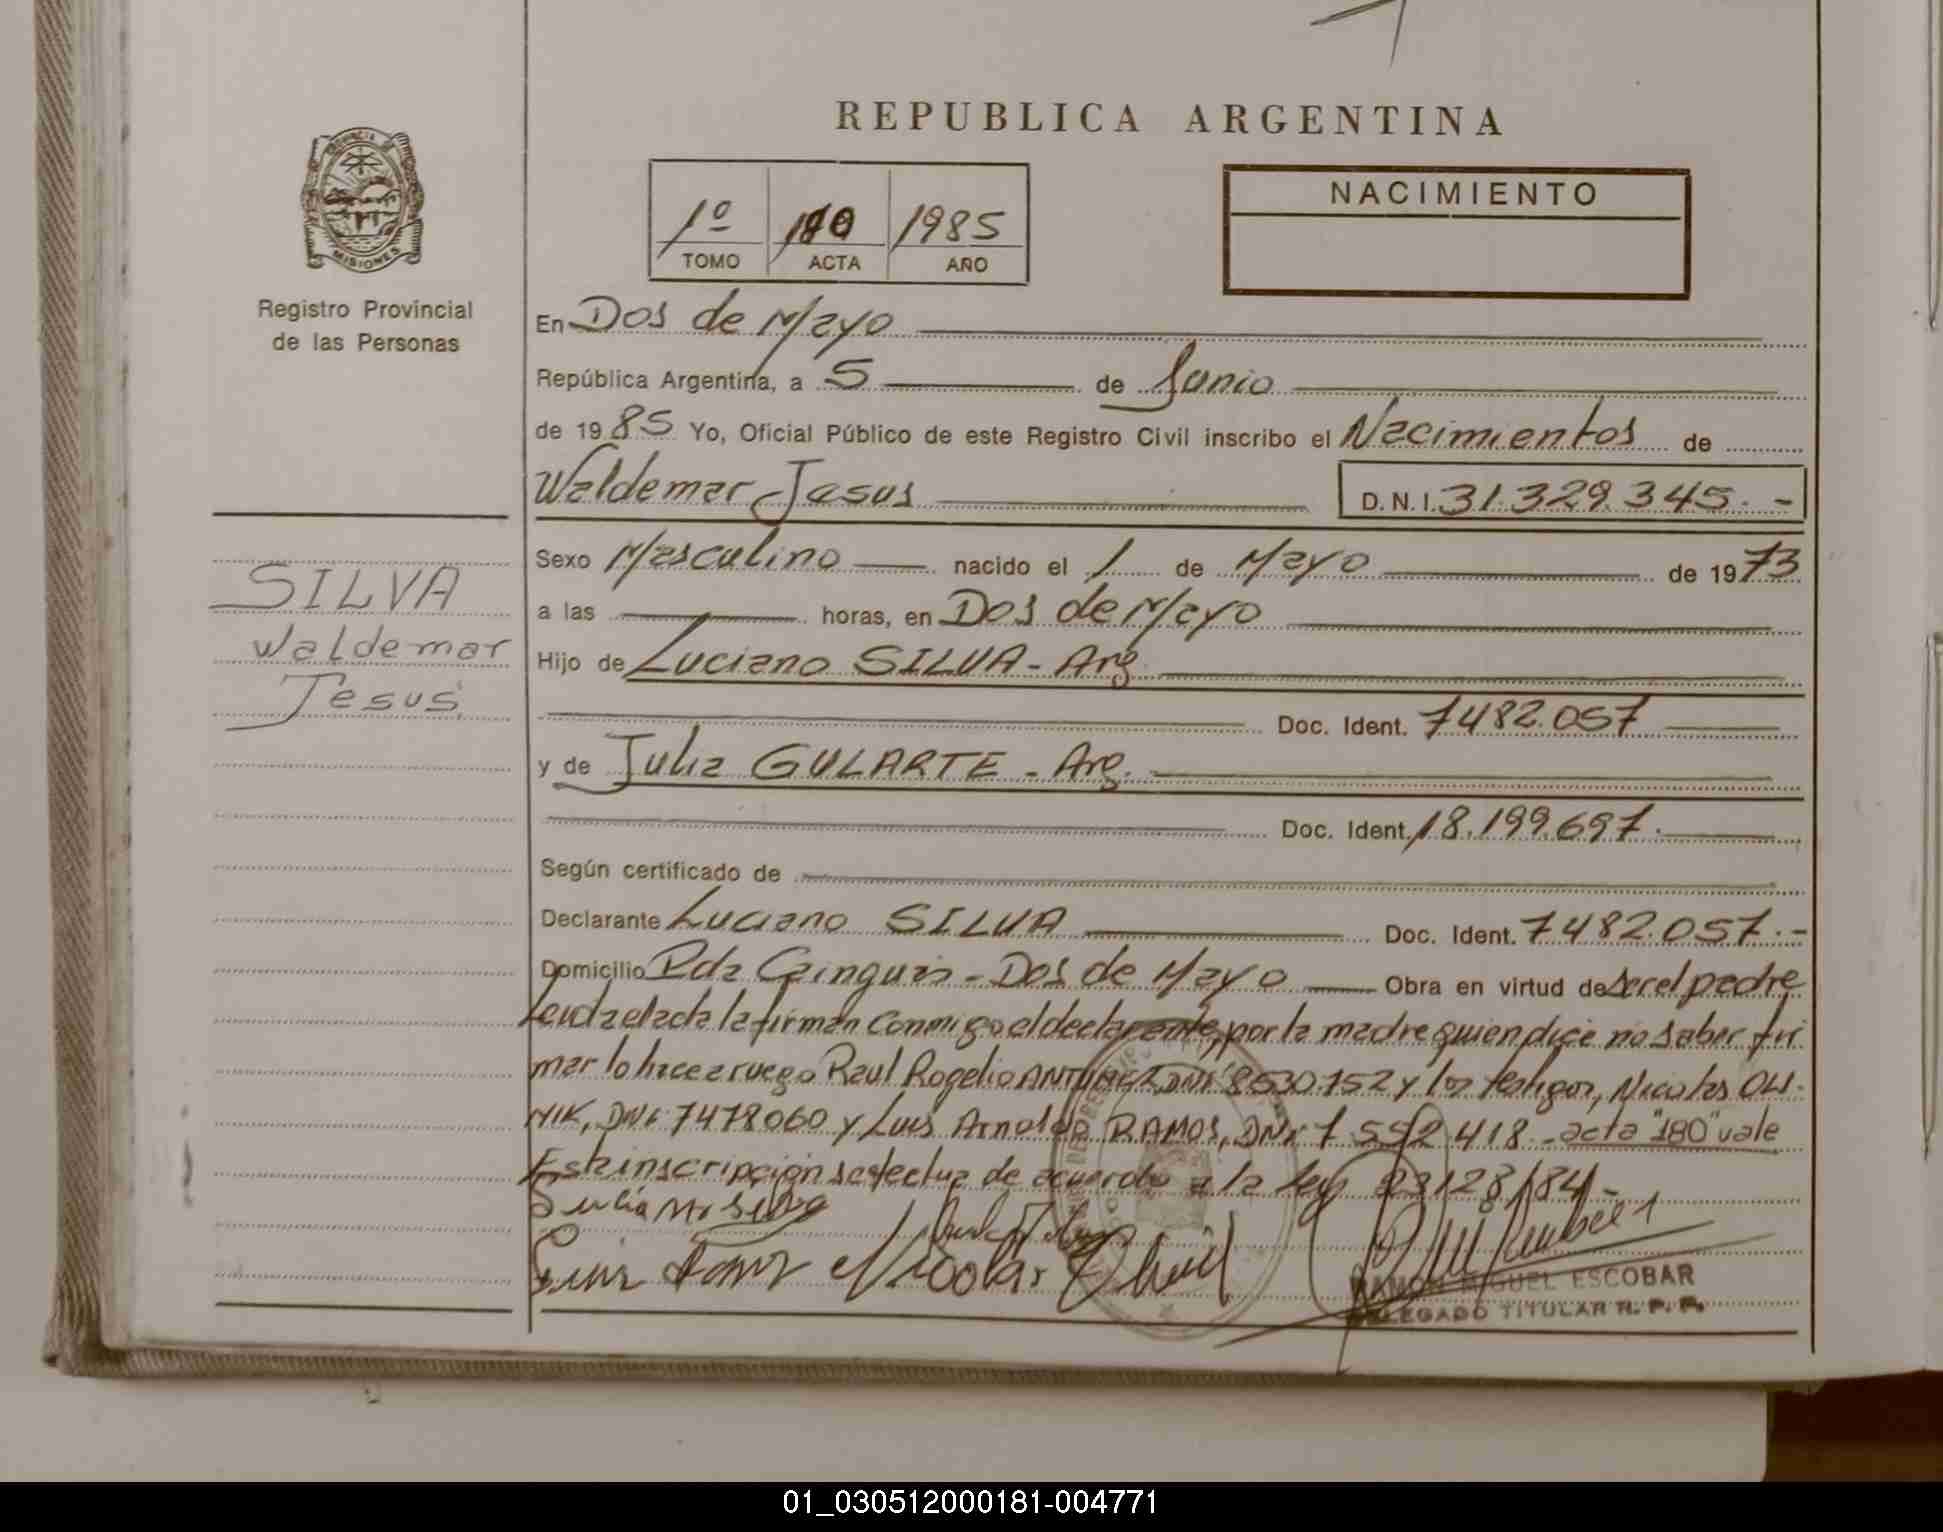 REPUBLICA ARGENTINA
PROVINCIA
MISIONES
Registro Provincial
de las Personas
1º 180 1985
TOMO ACTA AÑO
NACIMIENTO
En Dos de Mayo
República Argentina, a 5 de Junio
de 1985 Yo, Oficial Público de este Registro Civil inscribo el Nacimientos de
Waldemar Jesus D.N.I. 31.329.345.-
SILVA
Waldemar
Jesus
Sexo Masculino nacido el 1 de Mayo de 1973
a las horas, en Dos de Mayo
Hijo de Luciano SILVA - Arg.
Doc. Ident. 7482.057
y de Julia GULARTE - Arg.
Doc. Ident. 18.199.697.
Según certificado de
Declarante Luciano SILVA Doc. Ident. 7482.057.-
Domicilio Pda Cainguas - Dos de Mayo Obra en virtud de ser el padre
Leida el acta la firman conmigo el declarante, por la madre quien dice no saber fir
mar lo hace a ruego Raul Rogelio ANTUNEZ DNI 8530752 y los testigos, Nicolas OLI-
NIK, DNI 7478060 y Luis Arnoldo RAMOS, DNI 7 592 418 - acta "180" vale
Esta inscripción se efectua de acuerdo a la Ley 23128/84 -
Luis Nicolas
RAMON MIGUEL ESCOBAR
DELEGADO TITULAR R. P. P.
01_030512000181-004771